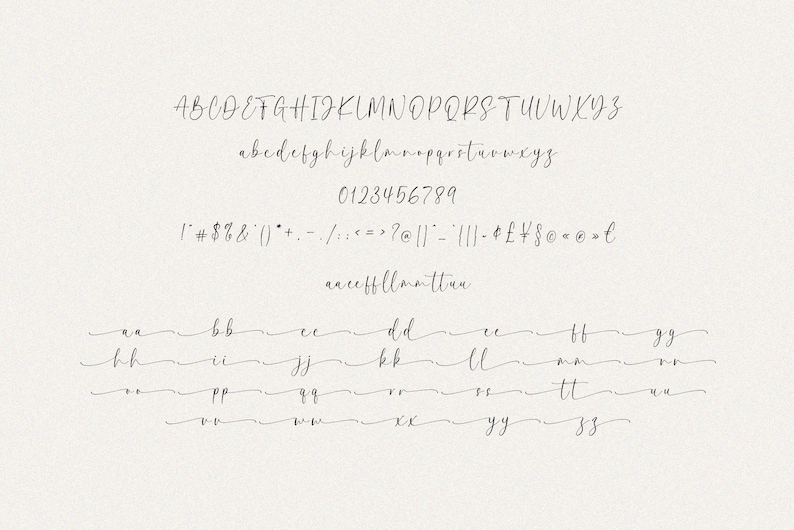 ABCDEFGHIJKLMNOPQRSTUVWXYZ
abcdefghijklmnopqrstuvwxyz
0123456789
!"#$%&'()*+,-./:;<=>?@[]^_`{|}~¢£¥§©«®»€
aaeeffllmmttuu
aa bb cc dd ee ff gg
hh ii jj kk ll mm nn
oo pp qq rr ss tt uu
vv ww xx yy zz